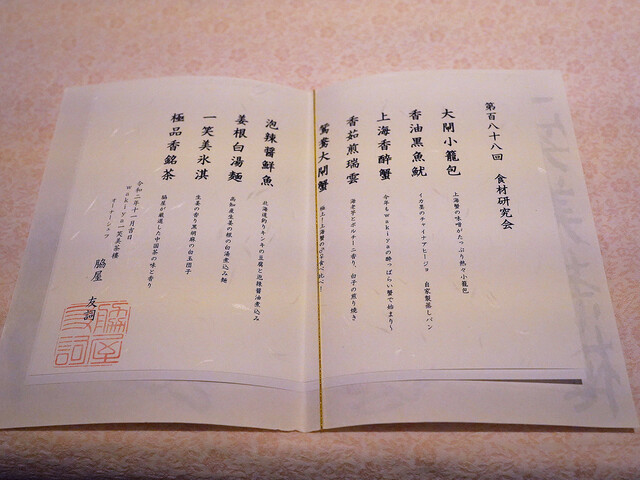 第百八十八回 食材研究会
大閘小籠包
上海蟹の味噌がたっぷり熱々小籠包
香油黒魚魷
イカ墨のチャイナアヒージョ 自家製蒸しパン
上海香醉蟹
今年もwakiyaの酔っぱらい蟹で始まり〜
香茹煎瑞雲
海老芋とポルチーニ香り 白子の煎り焼き
鴛鴦大閘蟹
泡辣醤鮮魚
北海道釣りキンキの豆腐と泡辣醤油煮込み
姜根白湯麺
高知産生姜の根の白湯煮込み麺
一笑美氷淇
生姜の香り黒胡麻の白玉団子
極品香銘茶
脇屋が厳選した中国茶の味と香り
令和二年十一月吉日
wakiya一笑美茶樓
オーナーシェフ
脇屋 友詞
脇屋友詞